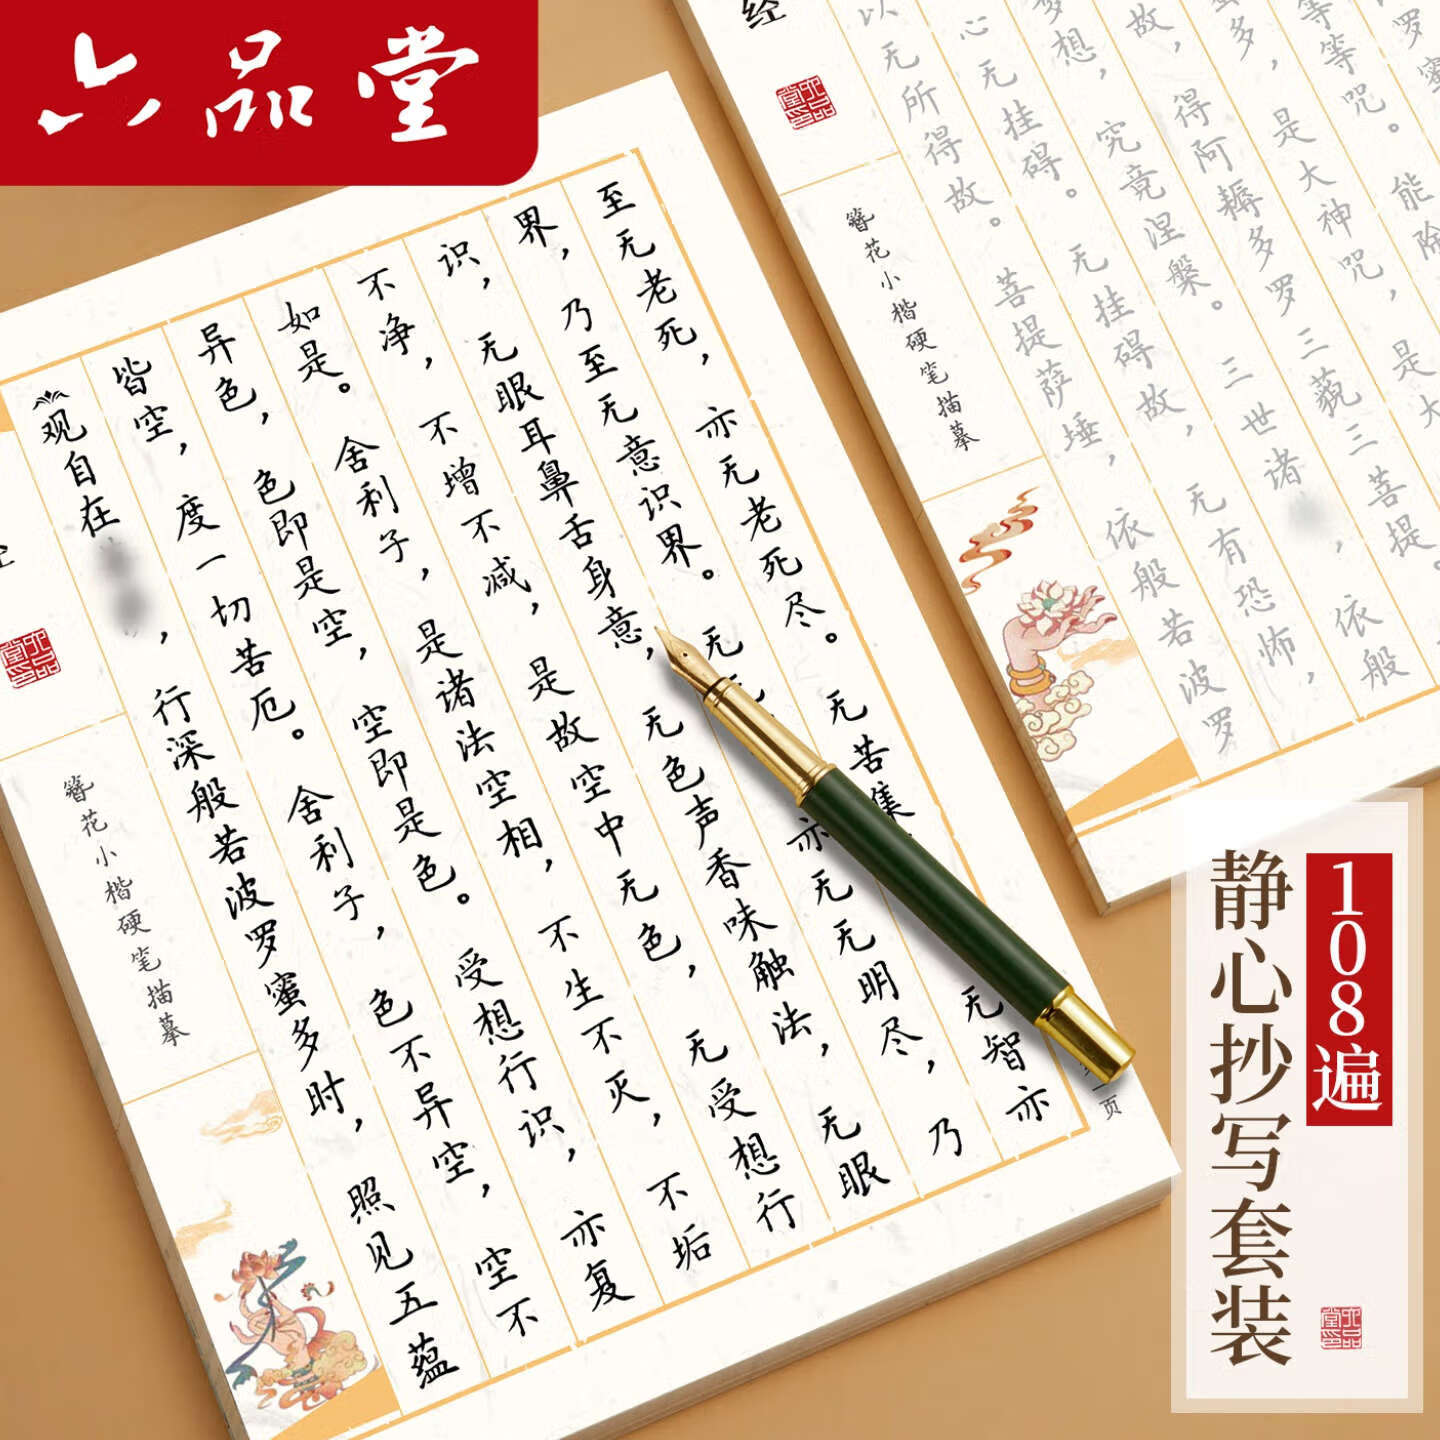 六品堂
观自在，行深般若波罗蜜多时，照见五蕴
皆空，度一切苦厄。舍利子，色不异空，空不
异色，色即是空，空即是色。受想行识，亦复
如是。舍利子，是诸法空相，不生不灭，不垢
不净，不增不减，是故空中无色，无受想行
识，无眼耳鼻舌身意，无色声香味触法，无眼
界，乃至无意识界。无 亦无无明尽，乃
至无老死，亦无老死尽。无苦集 无智亦
六品堂印
簪花小楷硬笔描摹
页
经
六品堂印
簪花小楷硬笔描摹
以无所得故。菩提萨埵，依般若波罗
心无挂碍。无挂碍故，无有恐怖，
梦想，究竟涅槃。三世诸，依般
故，得阿耨多罗三藐三菩提。
多，是大神咒，是大
等等咒。能除
罗蜜
108遍
静心抄写套装
六品堂印